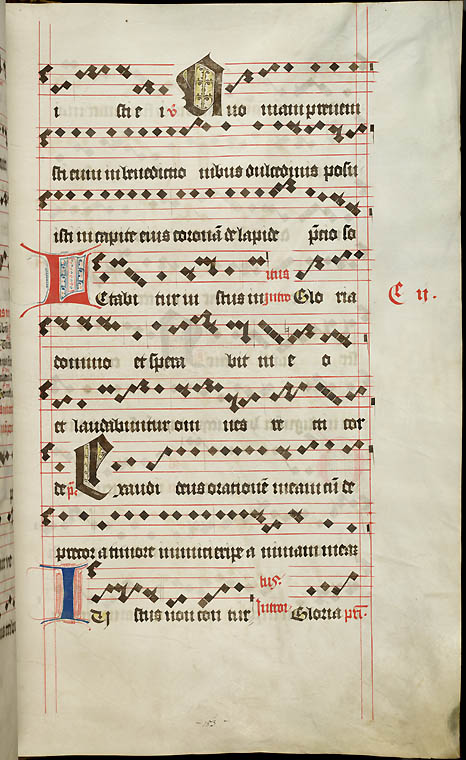 i sti e i v̄ Quo niam preueni
sti eum in benedictio nibus dulcedinis posu
isti in capite eius coronā de lapide p̄cio so
Letabi tur iu stus in itus Intro Glo ria
C ij.
domino et spera bit in e o
et laudabuntur om nes re cti cor
de p̄s Exaudi deus orationē meam cū de
precor a timore inimici eripe a nimam meam
tus:
Iu stus non con tur Introi Gloria